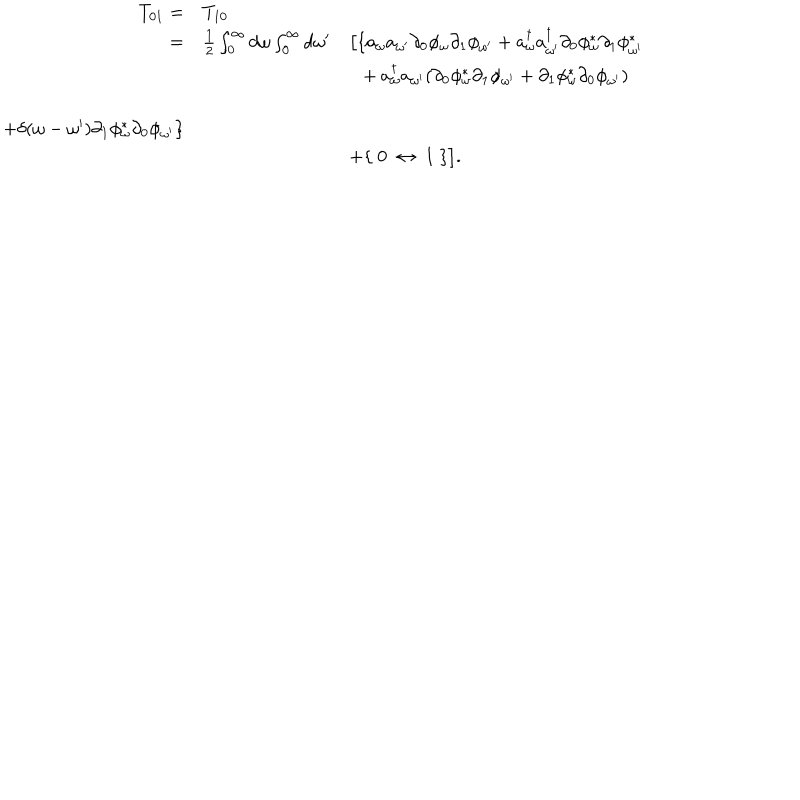 T₀₁ = T₁₀
= \frac{1}{2} ∫_0^∞ dω ∫_0^∞ dω′ [{a_ω a_{ω′} ∂_0 ϕ_ω ∂_1 ϕ_{ω′} + a_ω^† a_{ω′}^† ∂_0 ϕ_ω^* ∂_1 ϕ_{ω′}^*
+ a_ω^† a_{ω′} (∂_0 ϕ_ω^* ∂_1 ϕ_{ω′} + ∂_1 ϕ_ω^* ∂_0 ϕ_{ω′})
+δ(ω − ω′)∂_1 ϕ_ω^* ∂_0 ϕ_{ω′}}
+{ 0 ↔ 1 }].